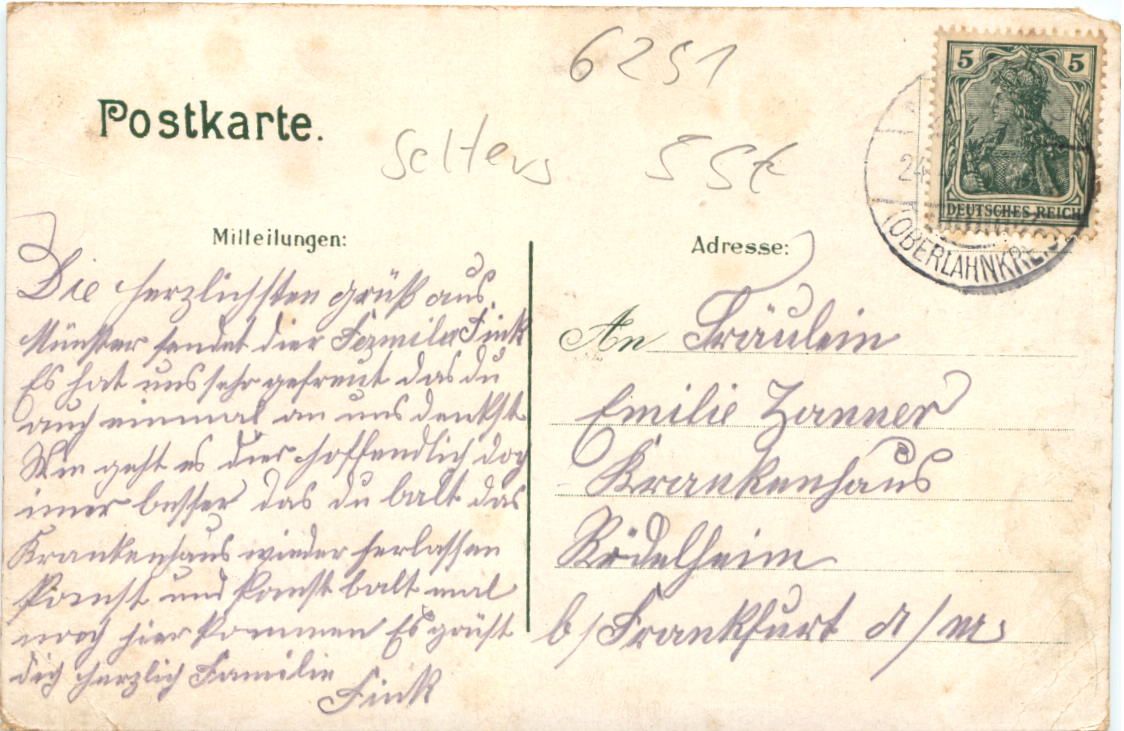 6251
Postkarte.
Selters
55t
5 5
DEUTSCHES REICH
24.
(OBERLAHNKREIS)
Mitteilungen:
Die herzlichsten grüß aus
Münster sendet dier Fink
Es hat uns sehr gefreut das du
auch einmal an uns denkst
Wie geht es dier hoffendlich doch
imer besser das du balt das
Krankenhaus wieder ferlassen
kanst und kanst balt mal
noch hier kommen Es grüst
dich herzlich Familie
Fink
Adresse:
An Fräulein
Emilie Zanner
Krankenhaus
Rödelheim
b/Frankfurt a/m.